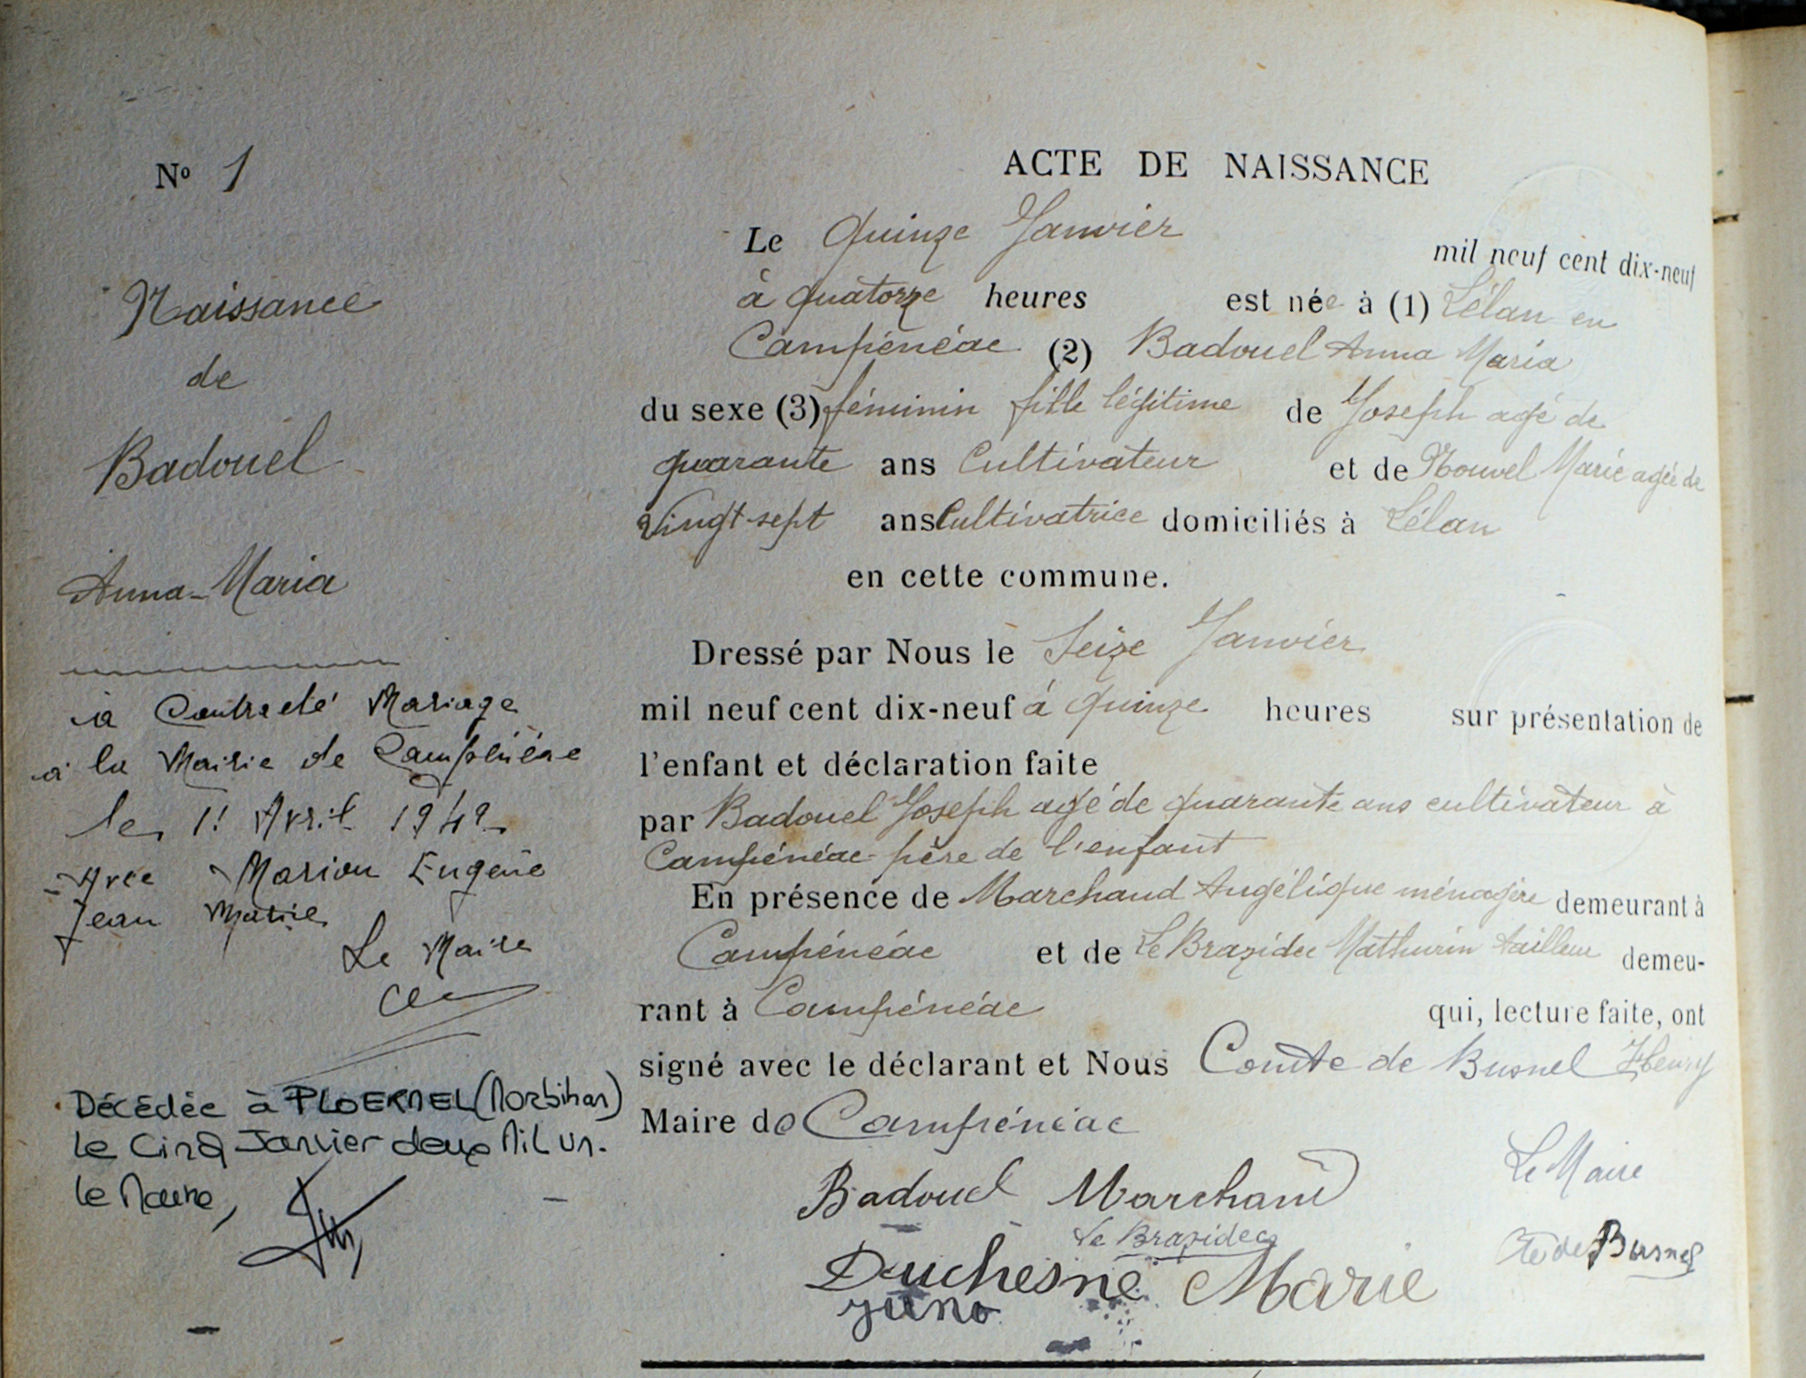 N° 1
Naissance
de
Badouel
Anna-Maria
a Contracté Mariage
à la Mairie de Campénéac
le 11 Avril 1942
Avec Marion Eugène
Jean Marie
Le Maire
Décédée à PLOERMEL (Morbihan)
le Cinq Janvier deux Mil un.
le Maire,
ACTE DE NAISSANCE
Le Quinze Janvier mil neuf cent dix-neuf
à quatorze heures est née à (1) Lélan en
Campénéac (2) Badouel Anna Maria
du sexe (3) féminin fille légitime de Joseph agé de
quarante ans Cultivateur et de Nouvel Marie agée de
Vingt-sept ans Cultivatrice domiciliés à Lélan
en cette commune.
Dressé par Nous le Seize Janvier
mil neuf cent dix-neuf à quinze heures sur présentation de
l'enfant et déclaration faite
par Badouel Joseph agé de quarante ans cultivateur à
Campénéac père de l'enfant
En présence de Marchand Angélique ménagère demeurant à
Campénéac et de Le Brazidec Mathurin tailleur demeu-
rant à Campénéac qui, lecture faite, ont
signé avec le déclarant et Nous Comte de Busnel Henry
Maire de Campénéac
Badouel Marchand Le Maire
Le Brazidec
Cte de Busnel
Duchesne Marie